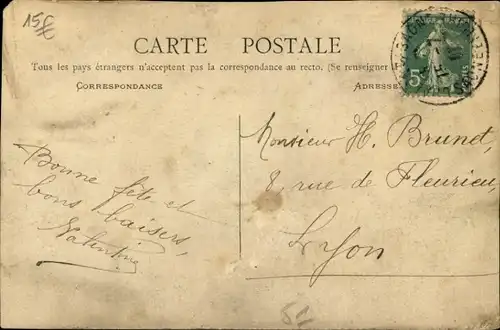 15€
CARTE POSTALE
Tous les pays étrangers n'acceptent pas la correspondance au recto. (Se renseigner
CORRESPONDANCE
ADRESSE
5c
Bonne fête et
bons baisers,
Valentine
Monsieur H. Brunet,
8, rue de Fleurieu
Lyon